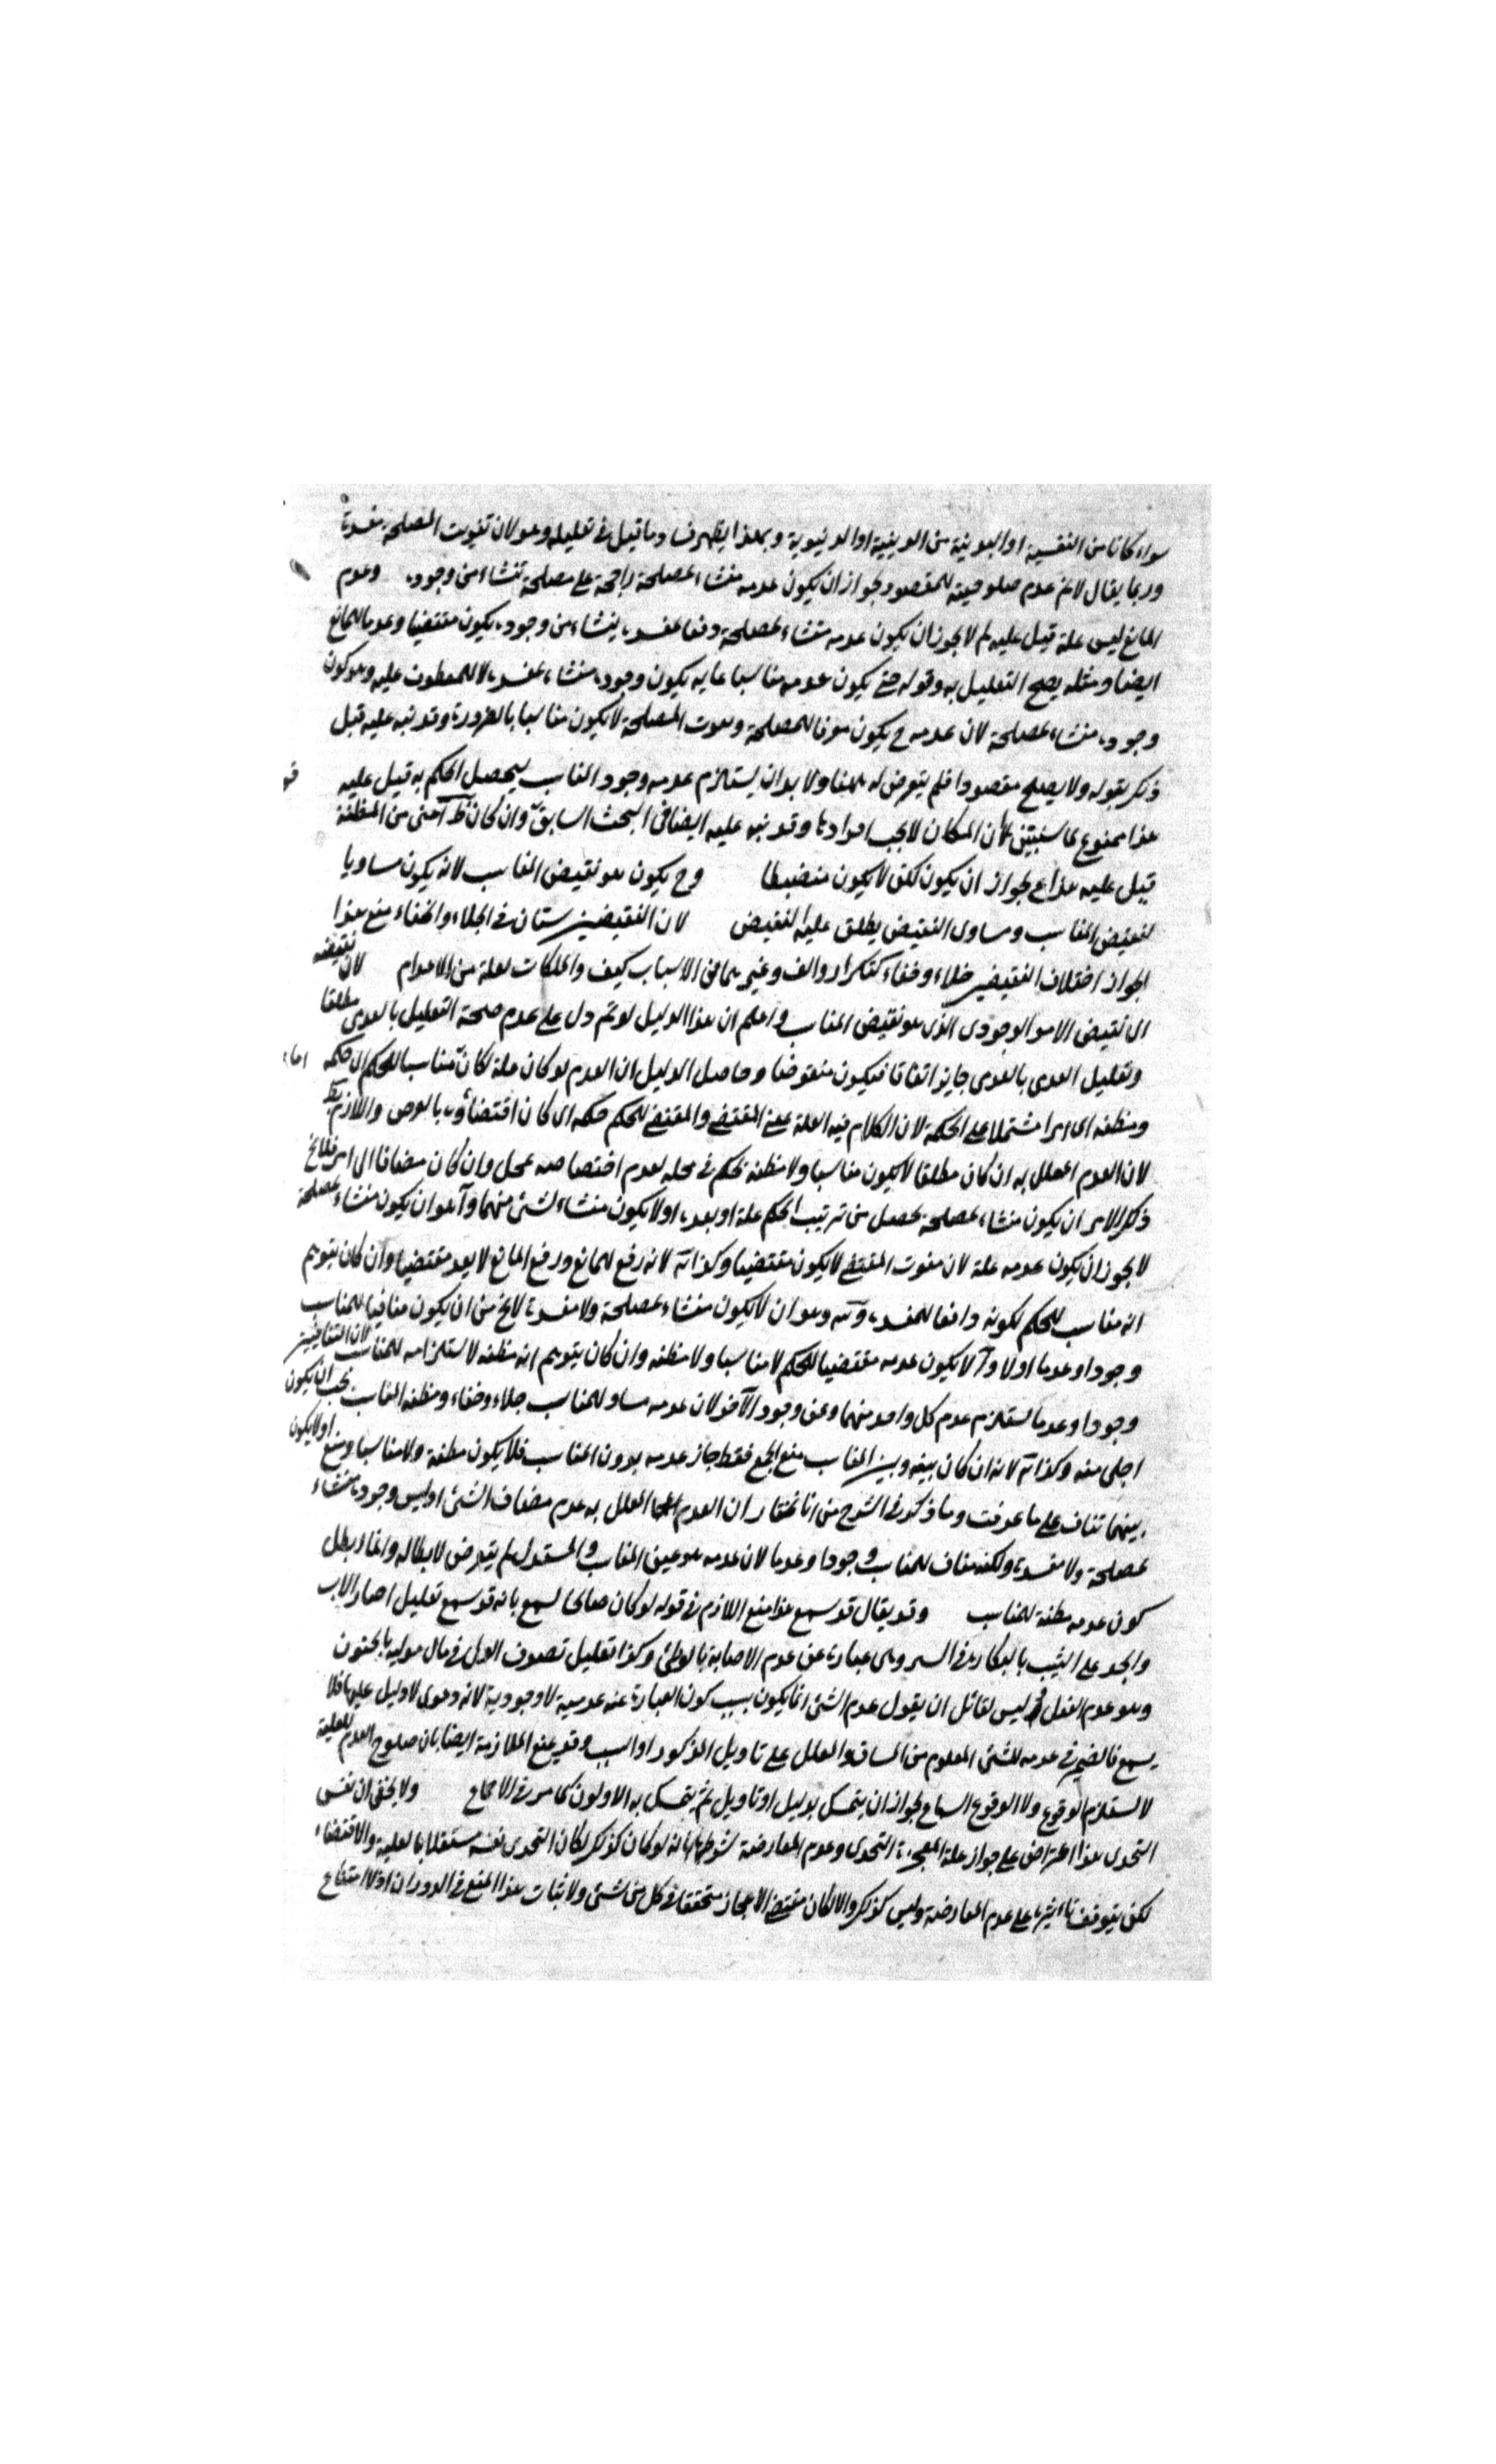 سواء كانا من النفسية او البدنية من الدينية او الدنيوية وبهذا يظهر فساد ما قيل في تعليله وهو لان تفويت المصلحة مفسدة
وربما يقال لانم عدم صلوحيته للمقصود لجواز ان يكون عدمه منشاء لمصلحة راجحة على مصلحة تنشاء من وجوده وعدم
المانع ليس علة قيل عليه لم لا يجوز ان يكون عدمه منشاء لمصلحة ودفعا لمفسدة ينشاء من وجوده يكون مقتضيا وعدما للمانع
ايضا ومثله يصح التعليل به وقوله حتى يكون عدمه مناسبا غايه يكون وجوده منشاء لمفسدة لا للمعطوف عليه وهو كون
وجوده منشاء لمصلحة لان عدمه ح يكون مفوتا للمصلحة ومفوت المصلحة لا يكون مناسبا بالضرورة وقد نبه عليه قبل
ذلك بقوله ولا يصلح مقصودا فلم يتعرض له ههنا ولا بد ان يستلزم عدمه وجود المناسب ليحصل الحكم به قيل عليه
هذا ممنوع لما سنبين لان المكان لا يجب افرادها وقد نبه عليه ايضا في البحث السابق وان كان اخفى من المظنة
قيل عليه هذا مع لجواز ان يكون لكن لا يكون منضبطا وح يكون هو نقيض المناسب لانه يكون مساويا
لنقيض المناسب ومساوى النقيض يطلق عليه النقيض لان النقيضين سيان في الجلاء والخفاء منع هذا
لجواز اختلاف النقيضين جلاء وخفاء كتكرار والف وغيرهما في الاسباب كيف والملكات لعلة من الاعدام لان نقيضه
اى نقيض الامر الوجودى الذى هو نقيض المناسب واعلم ان هذا الدليل لو تم دل على عدم صحة التعليل بالعدمى مطلقا
وتعليل العدمى بالعدمى جايز اتفاقا فيكون منقوضا وحاصل الدليل ان العدم لو كان علة لكان مناسبا للحكم اى حكمة
ومظنة اى امرا مشتملا على الحكمة لان الكلام في العلة بمعنى المقتضى والمقتضى للحكم حكمة اى كان اقتضاؤه بالعرض واللازم بط
لان العدم المعلل به ان كان مطلقا لا يكون مناسبا ولا مظنة لحكم في محله لعدم اختصاصه بمحل وان كان مضافا الى امر فلا يخ
ذلك الامر ان يكون منشاء لمصلحة يحصل من ترتيب الحكم علة او بعده او لا يكون منشاء لشئ منهما وآ هو ان يكون منشاء لمصلحة
لا يجوز ان يكون عدمه علة لان مفوت المقتضى لا يكون مقتضيا وكذا ب لانه رفع للمانع ورفع المانع لا يعد مقتضيا وان كان يتوهم
انه مناسب للحكم لكونه دافعا للمفسدة وج وهو ان لا يكون منشاء لمصلحة ولا مفسدة لا يخ من ان يكون منافيا للمناسب
وجودا وعدما اولا وآ لا يكون عدمه مقتضيا للحكم لا مناسبا ولا مظنة وان كان يتوهم انه مظنة لاستلزامه للمناسب لان التنافيين
وجودا وعدما يستلزم عدم كل واحد منهما وعن وجود الآخر لان عدمه مساو للمناسب جلاء وخفاء ومظنة المناسب يجب ان يكون
اجلى منه وكذا ب لانه ان كان بينه وبين المناسب منع الجمع فقط جاز عدمه بدون المناسب فلا يكون مظنة ولا مناسبا ومنع او لا يكون
بينهما تناف على ما عرفت وما ذكر في الشرح من انا نختار ان العدم المعلل به عدم مضاف الشئ او ليس وجوده منشاء
لمصلحة ولا مفسدة ولكنه مناف للمناسب وجودا وعدما لان عدمه هو عين المناسب والمستدل لم يتعرض لابطاله وانما ابطل
كون عدمه مظنة للمناسب وقد يقال قد سمع هذا منع اللازم في قوله لو كان صالحا لسمع بانه قد سمع تعليل اجبار الاب
والجد على الثيب بالبكارة في السر وهى عبارة عن عدم الاصابة بالوطئ وكذا تعليل تصرف الولى في مال موليه بالجنون
وهو عدم العقل وليس لقائل ان يقول عدم الشئ انما يكون بسبب كون العبارة عنه عدمية لا وجودية لانه دعوى لا دليل عليها فلا
يسمع فالضمير في عدمه للشئ المعلوم من السياق والمعلل على تاويل المذكور او السبب وقد يمنع الملازمة ايضا بان صلوح العدم للعلية
لا يستلزم الوقوع ولا الوقوع السماع لجواز ان يتمسك بدليل او تاويل لم يتمسك به الاولون كما مر في الاجماع ولا يخفى ان نفس
التحدى هذا اعتراض على جواز علة المعجزة التحدى وعدم المعارضة شرطها بانه لو كان كذلك لكان التحدى نفسه مستقلا بالعلية والاقتضاء
لكن يتوقف تاثيرها على عدم المعارضة وليس كذلك والا لكان مقتضى الاعجاز متحققا في كل من شئ ولاثبات هذا المنع في الدوران اولا امتناع